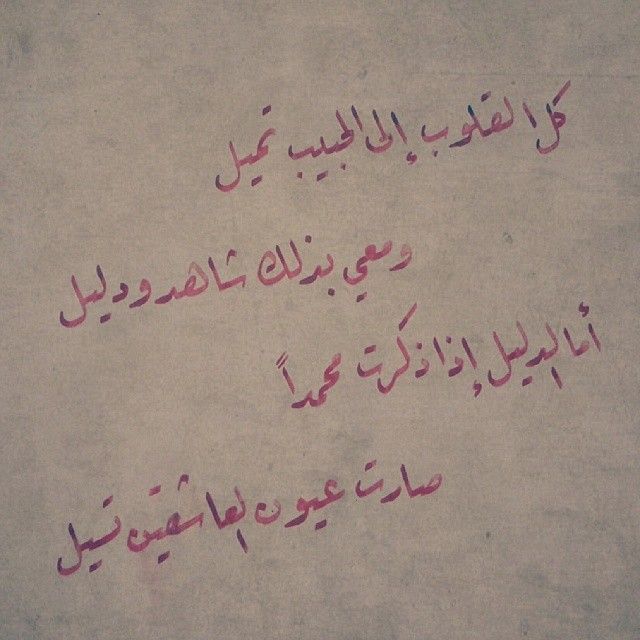 كل القلوب إلى الحبيب تميل
ومعي بذلك شاهد ودليل
أما الدليل إذا ذكرت محمداً
صارت عيون العاشقين تسيل